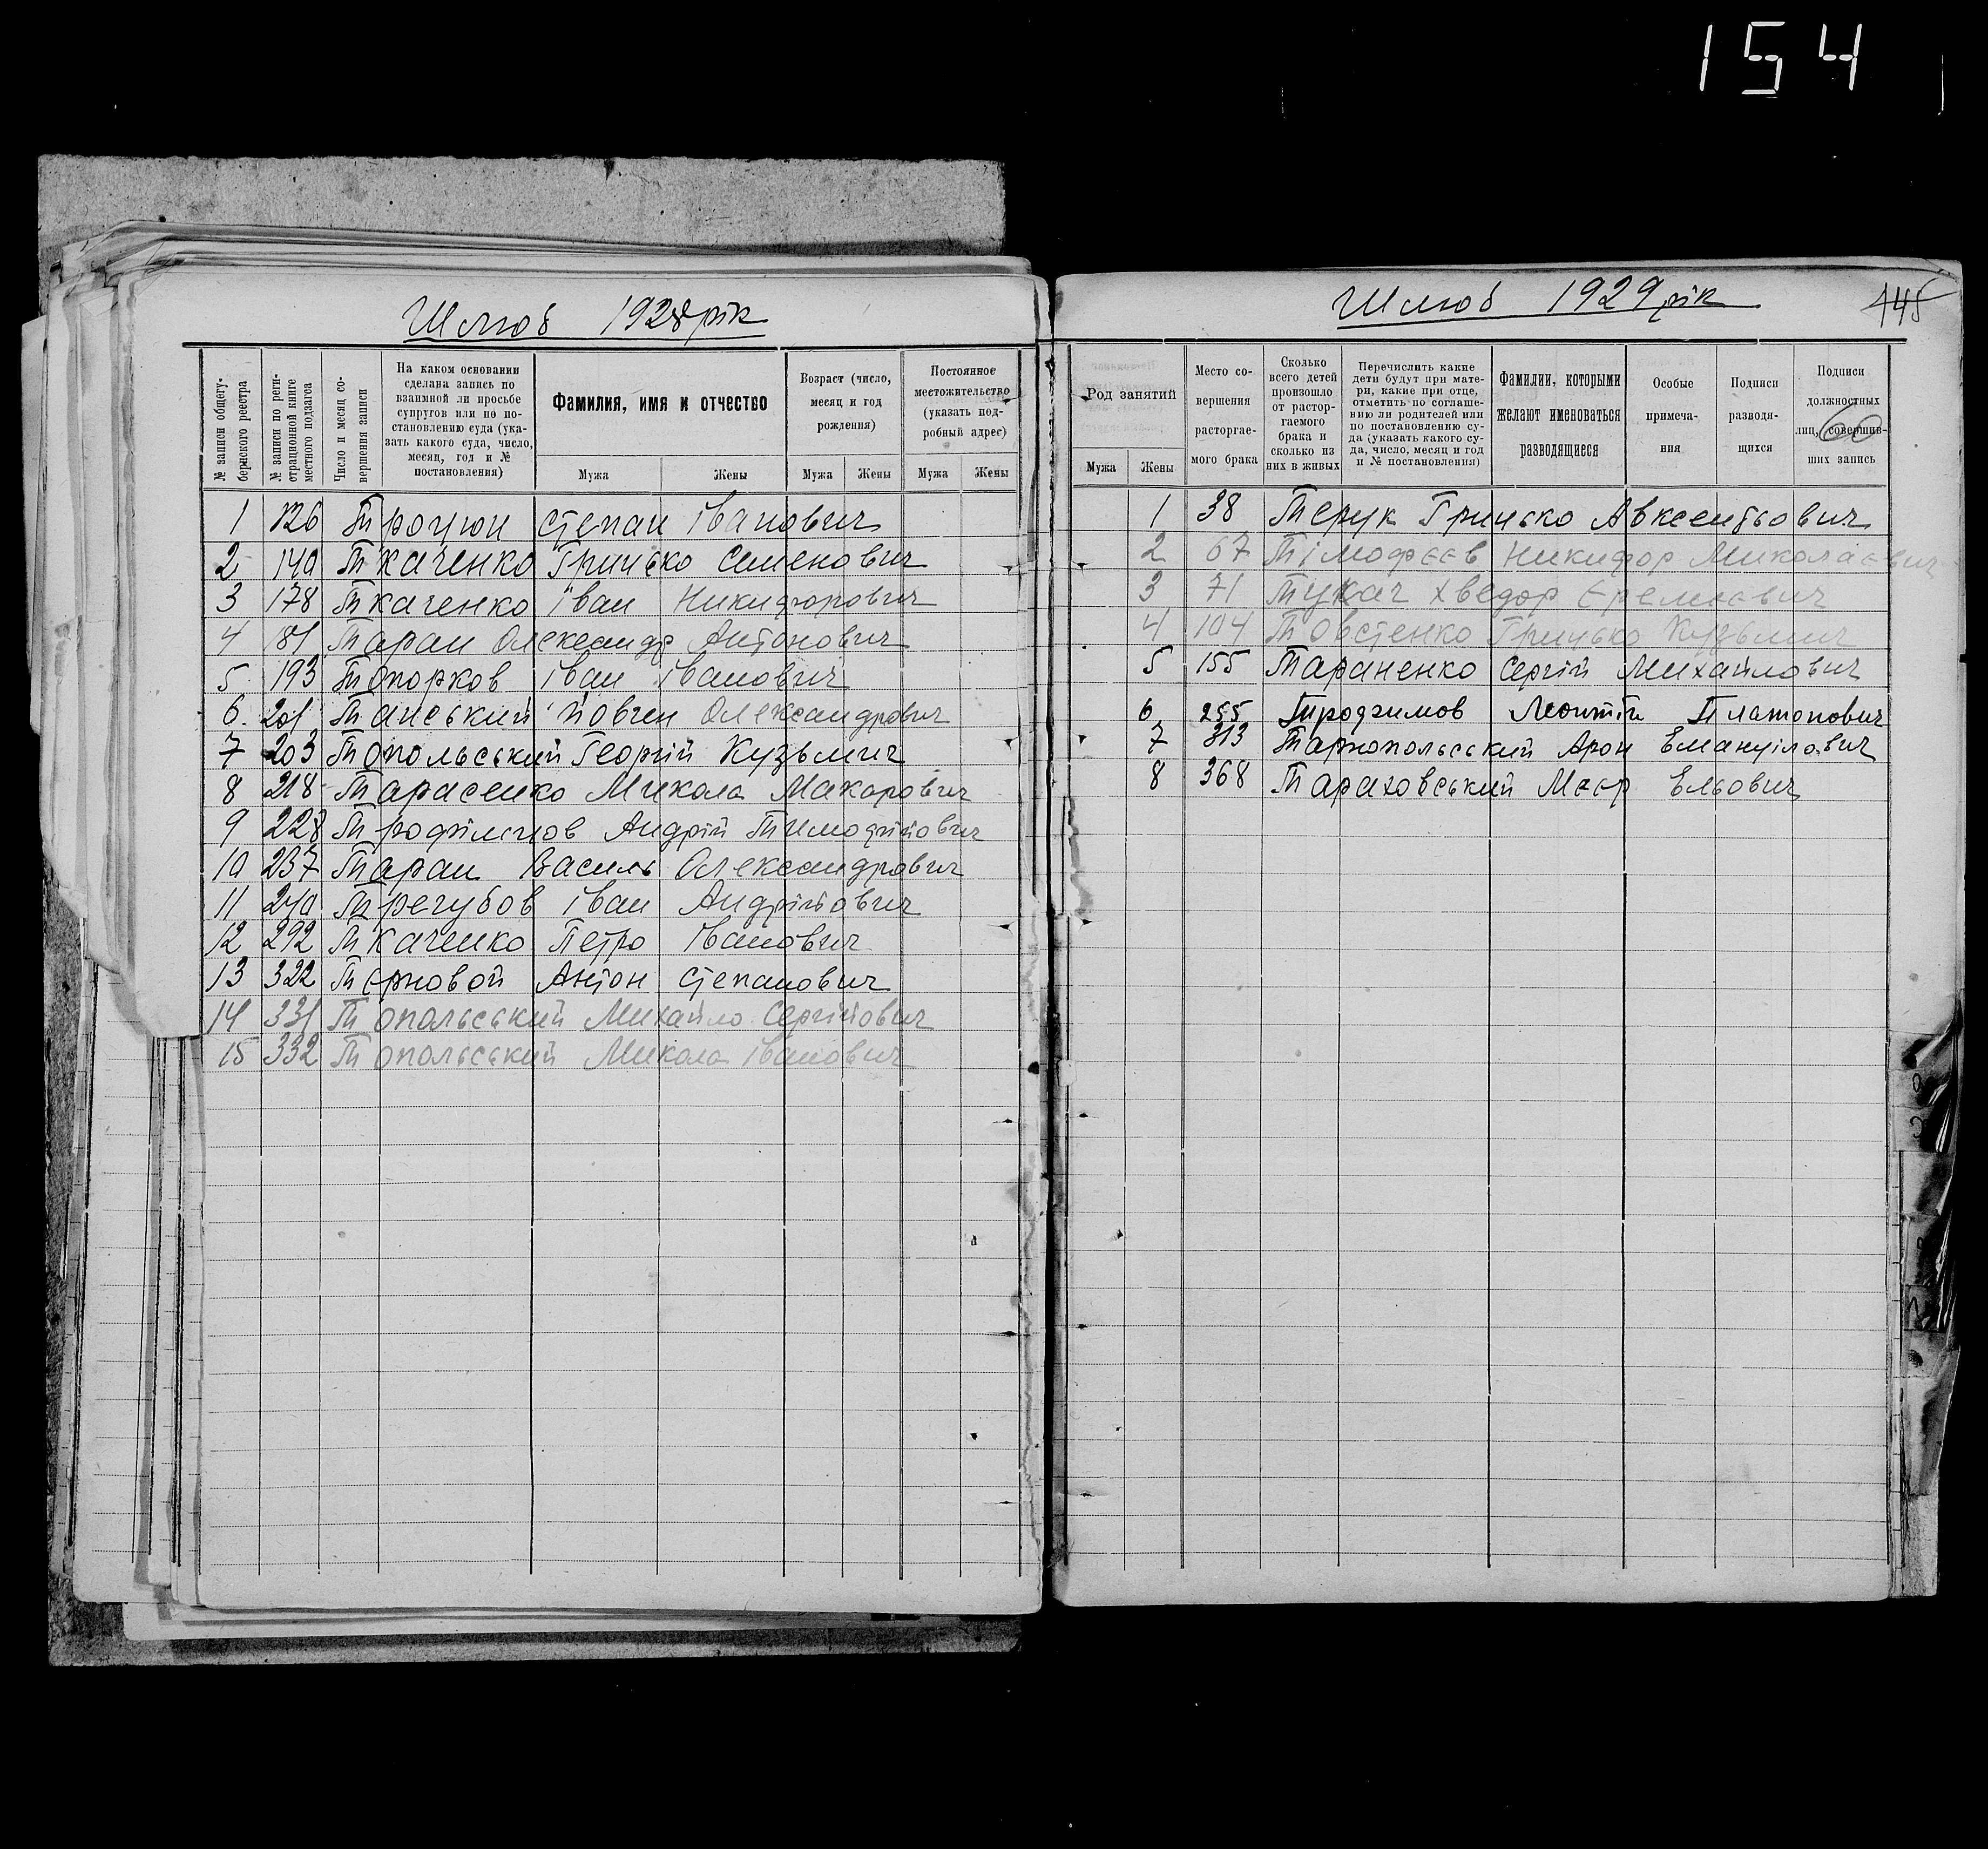 154
Шлюб 1928 рік
№ записи общегу-
бернского реестра
№ записи по реги-
страционной книге
местного подзагса
Число и месяц со-
вершения записи
На каком основании
сделана запись по
взаимной ли просьбе
супругов или по по-
становлению суда (ука-
зать какого суда, число,
месяц, год и №
постановления)
Фамилия, имя и отчество
Мужа Жены
Возраст (число,
месяц и год
рождения)
Мужа Жены
Постоянное
местожительство
(указать под-
робный адрес)
Мужа Жены
1 126 Троцюн Степан Іванович
2 140 Ткаченко Грицько Семенович
3 178 Ткаченко Іван Никифорович
4 181 Таран Олександр Антонович
5 193 Топорков Іван Іванович
6 201 Танський Йовген Олександрович
7 203 Топольський Георгій Кузьмич
8 218 Тарасенко Микола Макарович
9 228 Трофімов Андрій Тимофійович
10 237 Таран Василь Олександрович
11 240 Трегубов Іван Андрійович
12 292 Ткаченко Петро Іванович
13 322 Терновой Антон Степанович
14 331 Топольський Михайло Сергійович
15 332 Топольський Микола Іванович
Шлюб 1929 рік
145
Род занятий
Мужа Жены
Место со-
вершения
расторгае-
мого брака
Сколько
всего детей
произошло
от растор-
гаемого
брака и
сколько из
них в живых
Перечислить какие
дети будут при мате-
ри, какие при отце,
отметить по соглаше-
нию ли родителей или
по постановлению су-
да (указать какого су-
да, число, месяц и год
и № постановления)
Фамилии, которыми
желают именоваться
разводящиеся
Особые
примеча-
ния
Подписи
разводя-
щихся
Подписи
должностных
лиц, совершив-
ших запись
60
1 38 Терук Грицько Авксентьович
2 67 Тімофєєв Никифор Миколаєвич
3 71 Тукач Хведор Єремєєвич
4 104 Товстенко Грицько Кузьмич
5 155 Тараненко Сергій Михайлович
6 255 Трофимов Леонтій Платонович
7 313 Тарнопольський Арон Емануілович
8 368 Тараховський Меєр Ельович